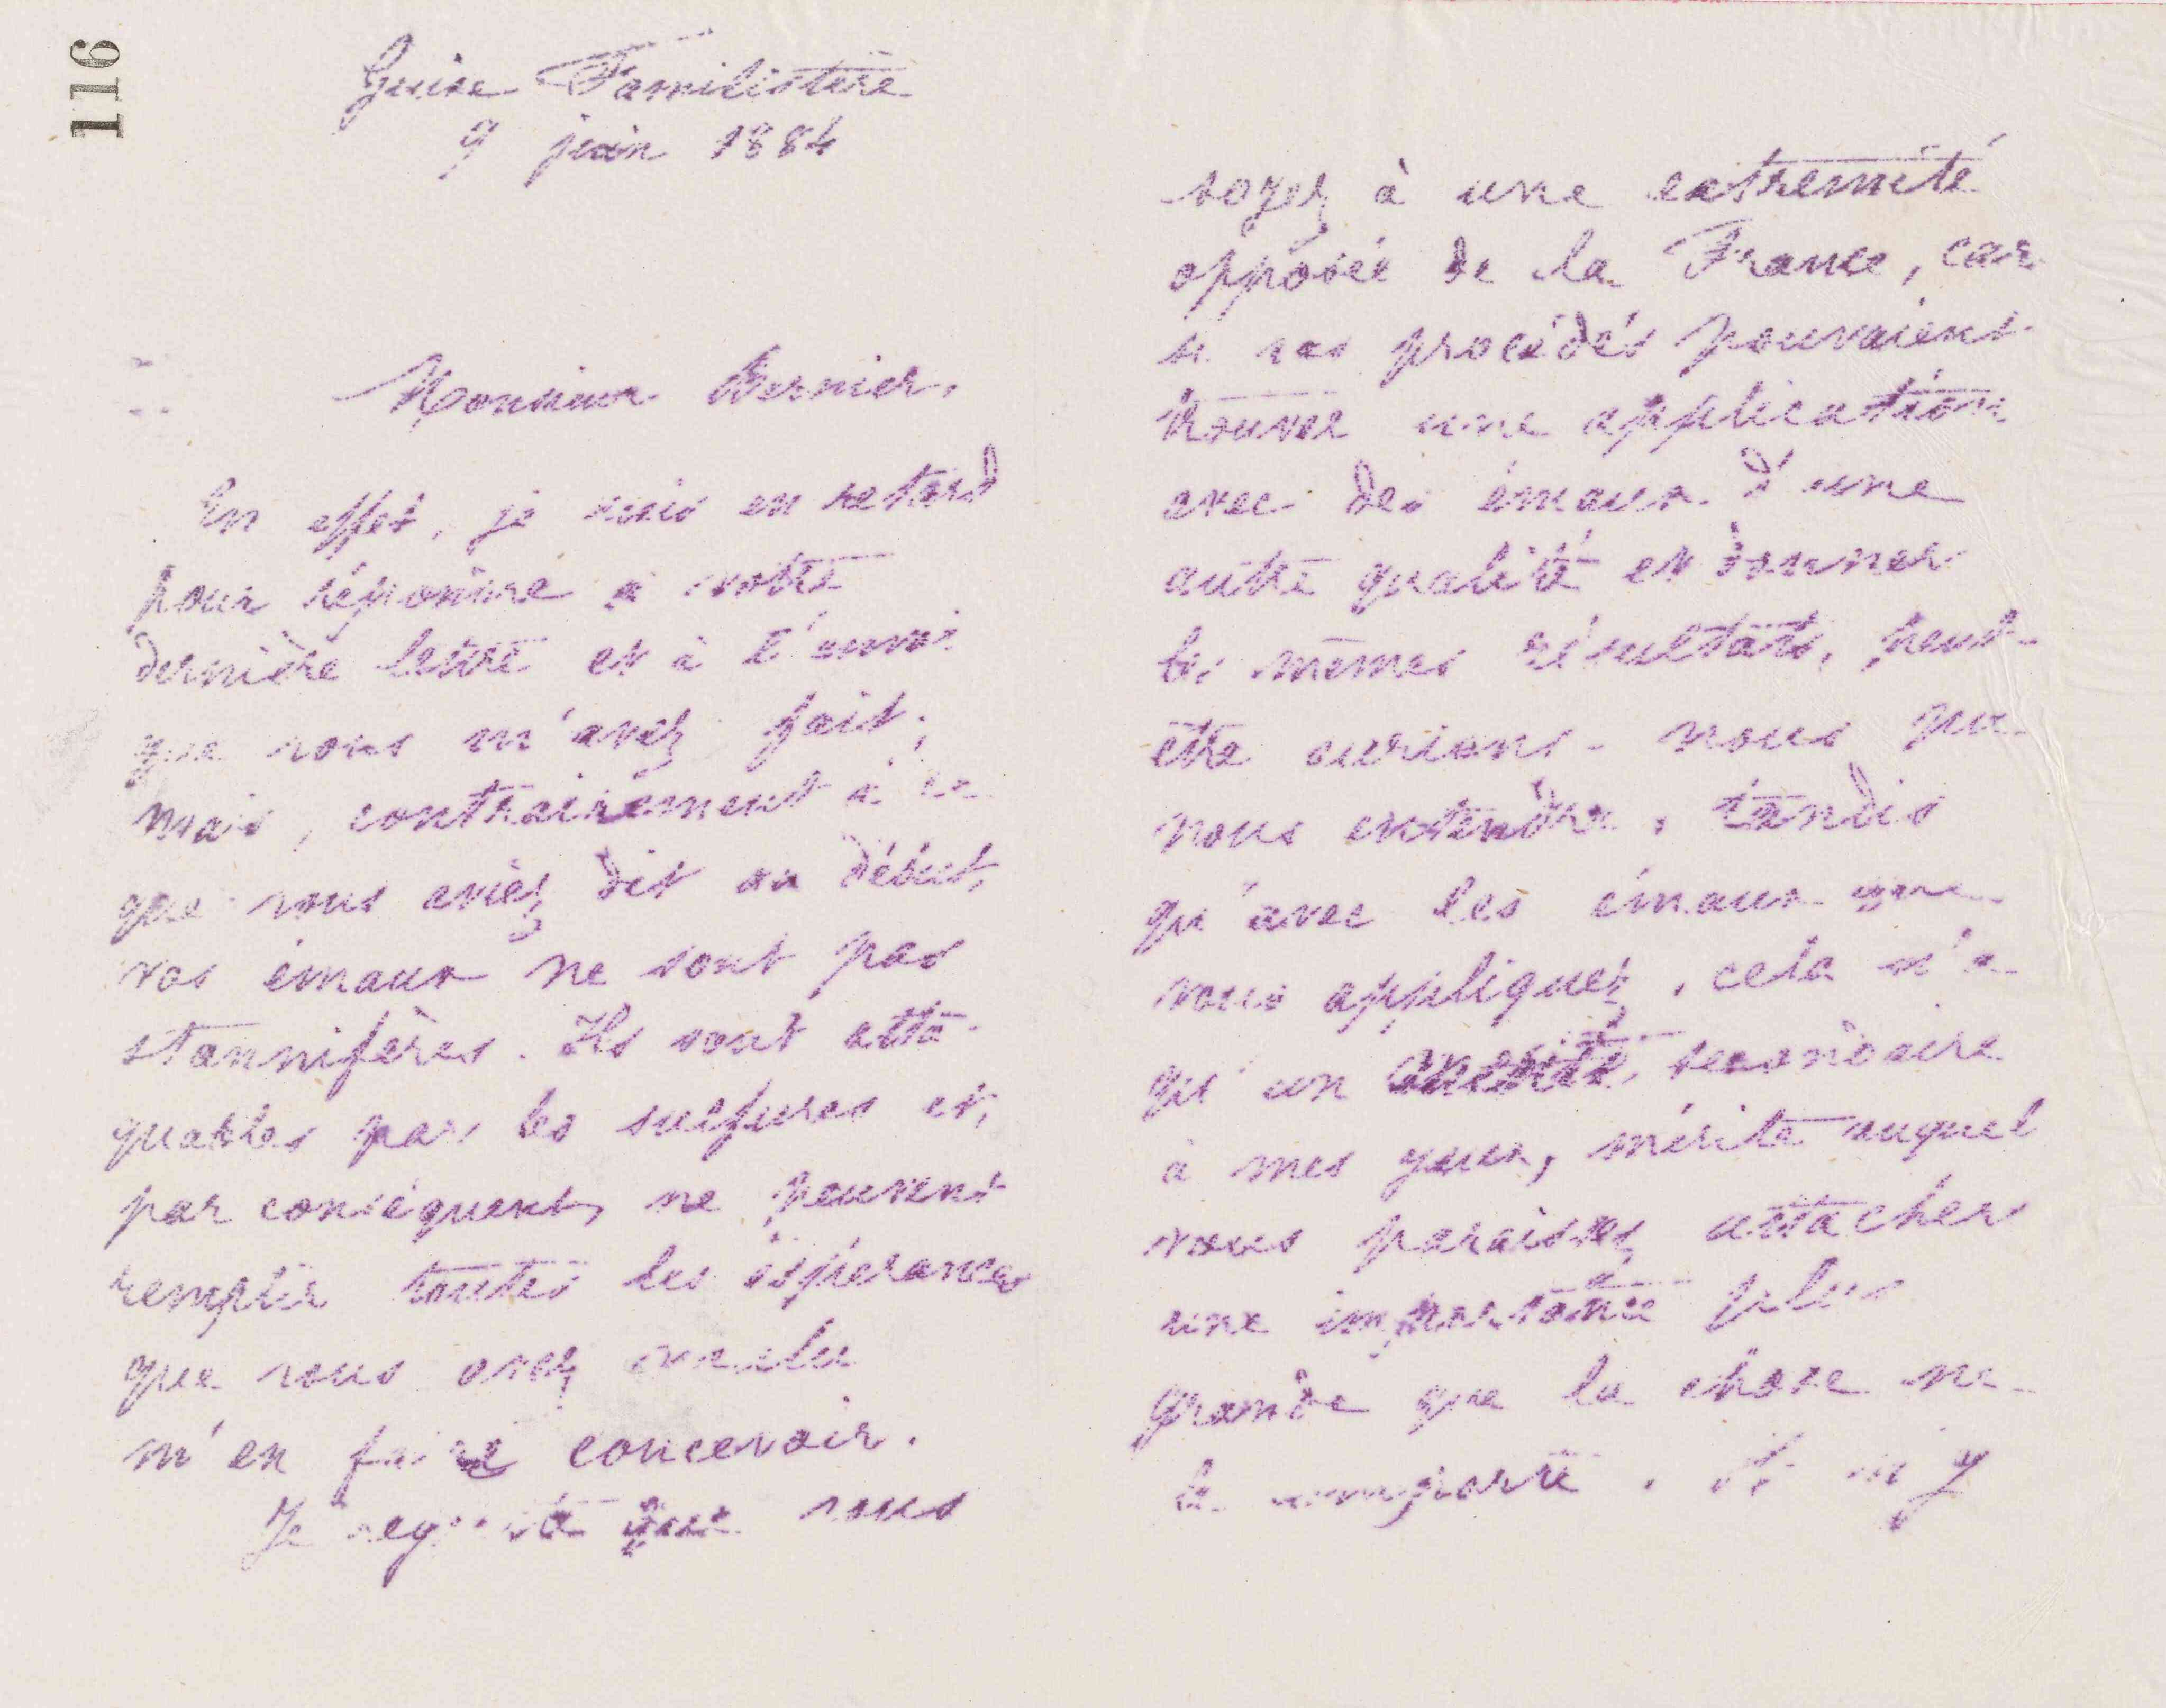 116
Guise Familistère
9 juin 1884
Monsieur Bernier,
En effet, je suis en retard
pour répondre à votre
dernière lettre et à l'envoi
que vous m'avez fait;
mais, contrairement à ce
que vous aviez dit au début,
vos émaux ne sont pas
stannifères. Ils sont atta-
quables par les sulfures et,
par conséquent, ne peuvent
remplir toutes les espérances
que vous avez voulu
m'en faire concevoir.
Je regrette que vous
soyez à une extrémité
opposée de la France, car
si vos procédés pouvaient
trouver une application
avec des émaux d'une
autre qualité et donner
les mêmes résultats, peut-
être aurions-nous pu
nous entendre, tandis
qu'avec les émaux que
vous appliquez, cela n'a
qu'un mérite secondaire
à mes yeux, mérite auquel
vous paraissez attacher
une importance plus
grande que la chose ne
le comporte. Il n'y